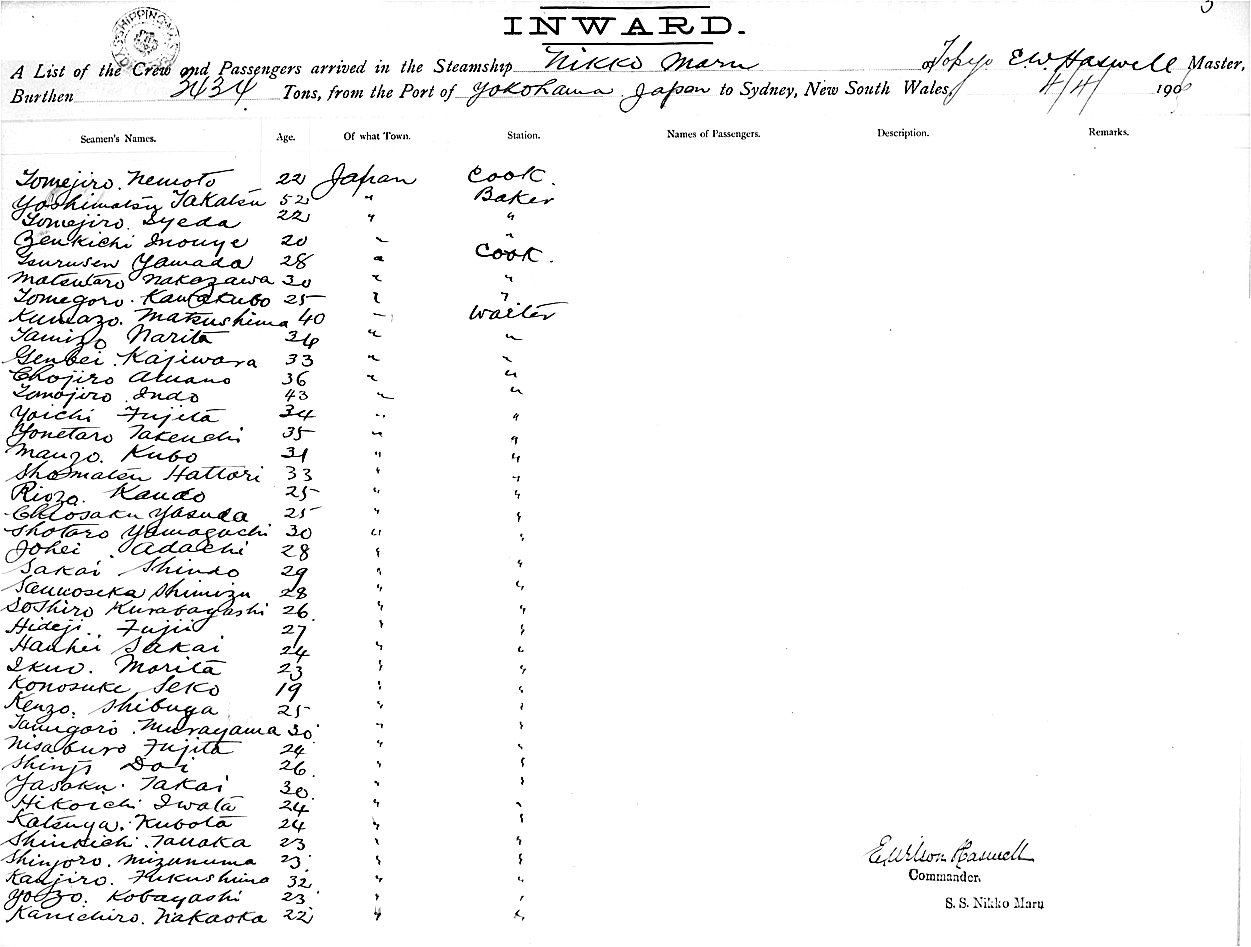 3
INWARD.
A List of the Crew and Passengers arrived in the Steamship Nikko Maru of Tokyo E.W. Haswell Master,
Burthen 3434 Tons, from the Port of Yokohama Japan to Sydney, New South Wales, 4/4/ 190
Seamen's Names. Age. Of what Town. Station. Names of Passengers. Description. Remarks.
Tomejiro. Nemoto 22 Japan Cook.
Yoshimatsu Takatsu 52 " Baker
Tomejiro. Syeda 22 " "
Zenkichi Inouye 20 " "
Tsurusen Yamada 28 " Cook.
Matsutaro Nakazawa 30 " "
Tomegoro. Kawakubo 25 " "
Kumazo. Matsushima 40 " Waiter
Tamizo Narita 34 " "
Genbei Kajiwara 33 " "
Chojiro Amano 36 " "
Tomojiro Indo 43 " "
Yoichi Fujita 34 " "
Yonetaro Takeuchi 35 " "
Manzo. Kubo 31 " "
Shomatsu Hattori 33 " "
Riozo. Kando 25 " "
Chiosaku Yasuda 25 " "
Shotaro Yamaguchi 30 " "
Johei. Adachi 28 " "
Sakai Shindo 29 " "
Sannoseka Shimizu 28 " "
Soshiro Kurabayashi 26 " "
Hideji. Fujii 27 " "
Hanhei Sakai 24 " "
Ikuo. Morita 23 " "
Konosuke Seko 19 " "
Kenzo. Shibuya 25 " "
Tamigoro. Murayama 30 " "
Nisaburo Fujita 24 " "
Shinji Doi 26 " "
Yasaku. Takai 30 " "
Hikoichi Iwata 24 " "
Katsuya. Kubota 24 " "
Shinkichi. Tanaka 23 " "
Shinjoro. Mizunuma 23 " "
Kanjiro. Fukushima 32 " "
Yozo. Kobayashi 23 " "
Kanichiro. Nakaoka 22 " "
E. Wilson Haswell
Commander.
S. S. Nikko Maru